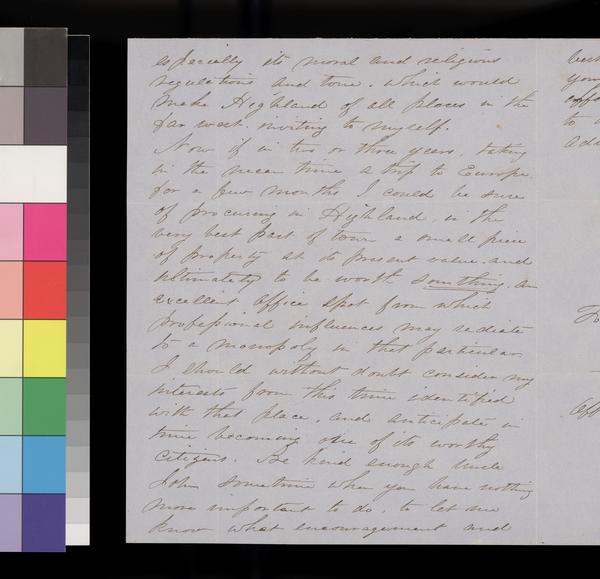 especially its moral and religious
regulations and tone. which would
make Highland of all places in the
far west. inviting to myself.
Now if in two or three years, taking
in the mean time a trip to Europe
for a few months I could be sure
of procuring in Highland, in the
very best part of town a small piece
of property at its present value. and
ultimately to be worth something. an
excellent office spot from which
professional influences may radiate
to a monopoly in that particular
I should without doubt consider my
interests from this time identified
with that place, and anticipate in
time becoming one of its worthy
citizens. Be kind enough Uncle
John sometime when you have nothing
more important to do, to let me
know what encouragement and
you
to